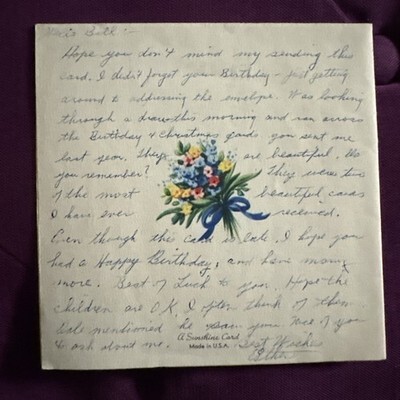 Hope you don't mind my sending this
card. I didn't forget your Birthday - just getting
around to addressing the envelope. Was looking
through a drawer this morning and ran across
the Birthday & Christmas cards you sent me
last year. They are beautiful. Do
you remember? They were two
of the most beautiful cards
I have ever received.
Even though this card is late, I hope you
had a Happy Birthday, and have many
more. Best of Luck to you. Hope the
children are O.K. I often think of them.
mentioned he seen you. Nice of you
to ask about me. Best Wishes
Esther
A Sunshine Card
Made in U.S.A.